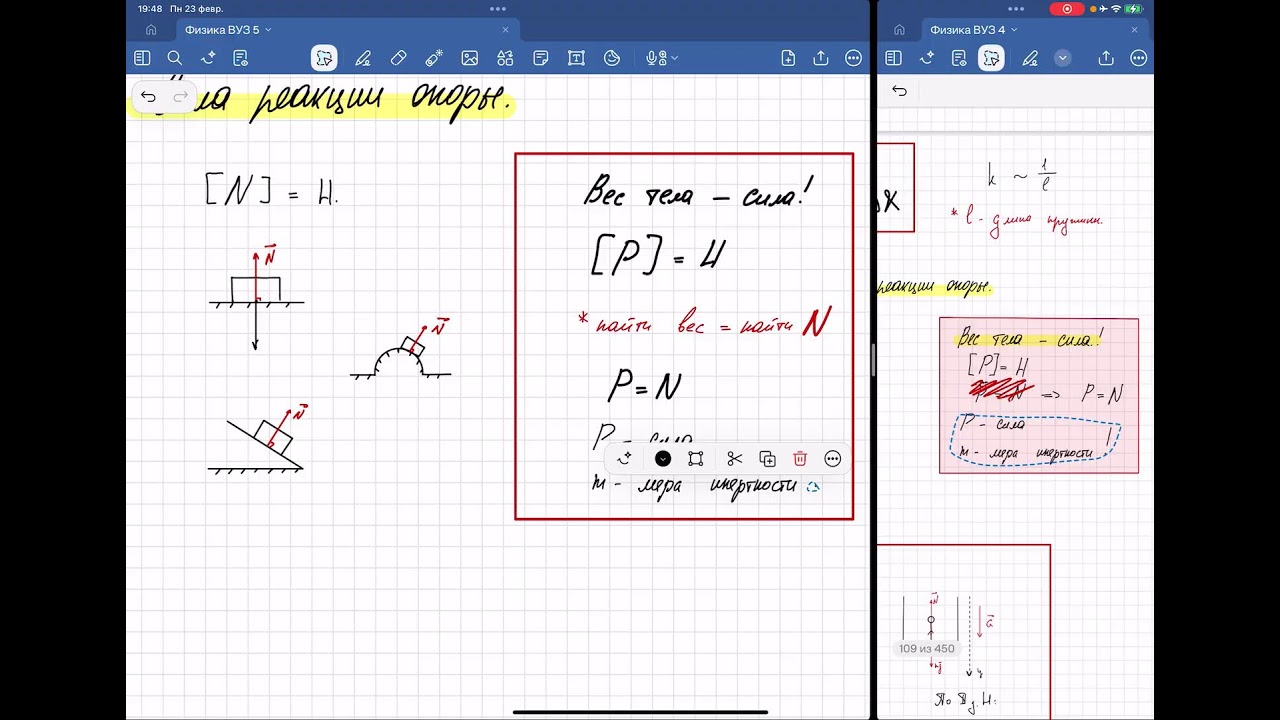 19:48 Пн 23 февр.
Физика ВУЗ 5
реакции опоры.
[N] = Н.
N
N
N
Вес тела – сила!
[P] = Н
* найти вес = найти N
P = N
P – сила
m – мера инертности
Физика ВУЗ 4
k ~ 1/l
* l – длина пружины.
реакции опоры.
Вес тела – сила!
[P] = Н
=> P = N
P – сила
m – мера инертности
N
a
109 из 450
mg
y
По II з. Н: